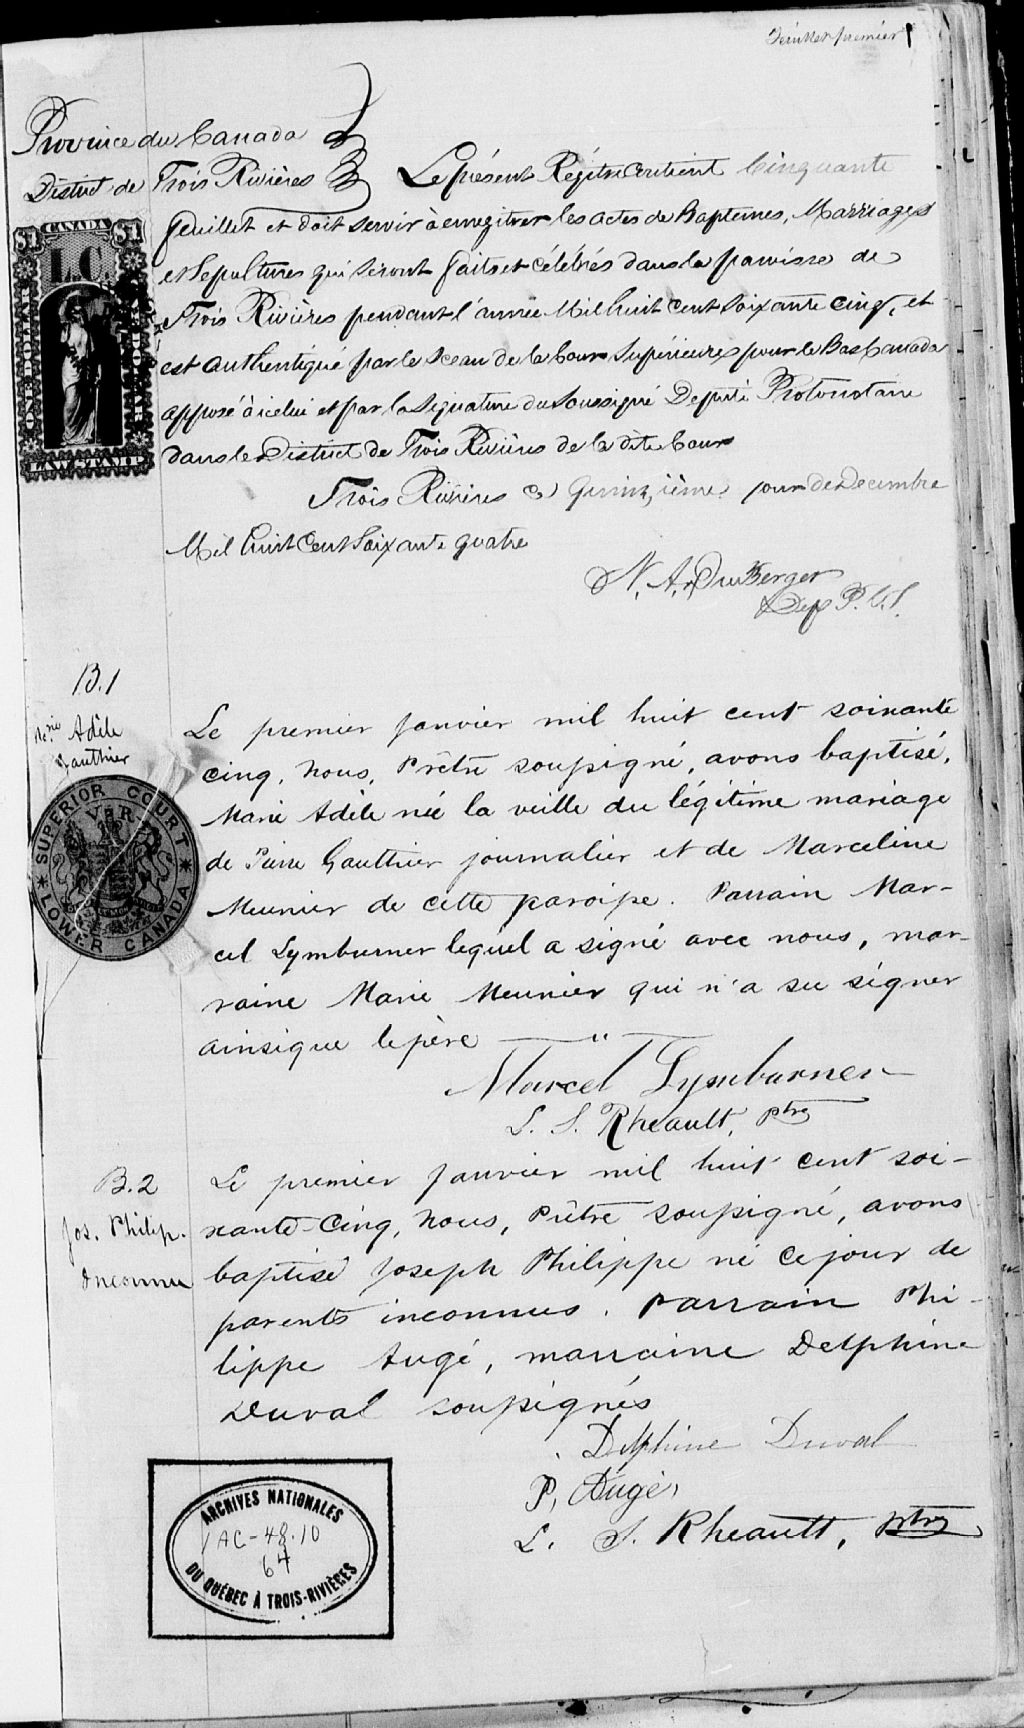 feuillet premier 1
Province du Canada
District de Trois Rivières
Le présent Régitre contient Cinquante
feuillet et doit servir à enregitrer les actes de Baptemes, Marriages
et Sepultures qui seront faits et célébrés dans la paroisse de
Trois Rivières pendant l'année Mil huit cent soixante cinq, et
est authentiqué par le Sceau de la Cour Supérieure pour le Bas Canada
apposé à icelui et par la Signature du Soussigné Deputé Protonotaire
dans le District de Trois Rivières de la dite Cour
Trois Rivières ce Quinzième jour de Decembre
Mil huit Cent Soixante quatre
N. A. DuBerger
Dep P. C. S.
CANADA
$1 $1
L.C.
ONE DOLLAR
LAW STAMP
B.1
Marie Adèle
Gauthier
SUPERIOR COURT
V R
LOWER CANADA
Le premier Janvier mil huit cent soixante
cinq, Nous, Prêtre soussigné, avons baptisé,
Marie Adèle née la veille du légitime mariage
de Pierre Gauthier journalier et de Marceline
Meunier de cette paroisse. Parrain Mar-
cel Lymburner lequel a signé avec nous, mar-
raine Marie Meunier qui n'a su signer
ainsique le père
Marcel Lymburner
L. S. Rheault, Ptre
B.2
Jos. Philip.
Inconnu
Le premier Janvier mil huit cent soi-
xante-cinq, Nous, Prêtre soussigné, avons
baptisé Joseph Philippe né ce jour de
parents inconnus. Parrain Phi-
lippe Augé, marraine Delphine
Duval soussignés
Delphine Duval
P. Augé,
L. S. Rheault, Ptre
ARCHIVES NATIONALES
1AC-48.10
64
DU QUÉBEC À TROIS-RIVIÈRES